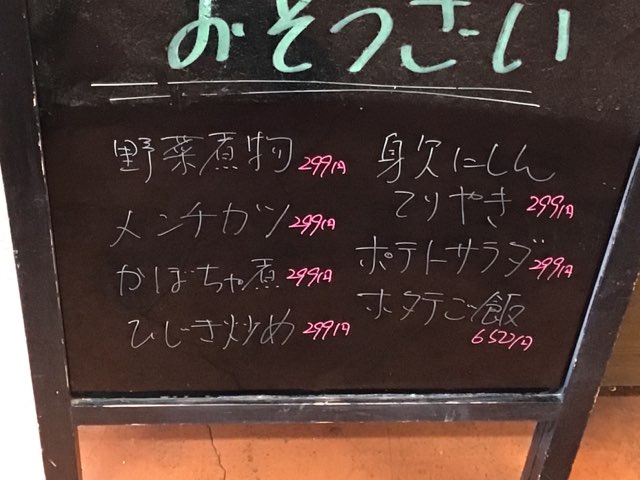 おそうざい
野菜煮物 299円
メンチカツ 299円
かぼちゃ煮 299円
ひじき炒め 299円
身欠にしん
てりやき 299円
ポテトサラダ 299円
ホタテご飯
650円